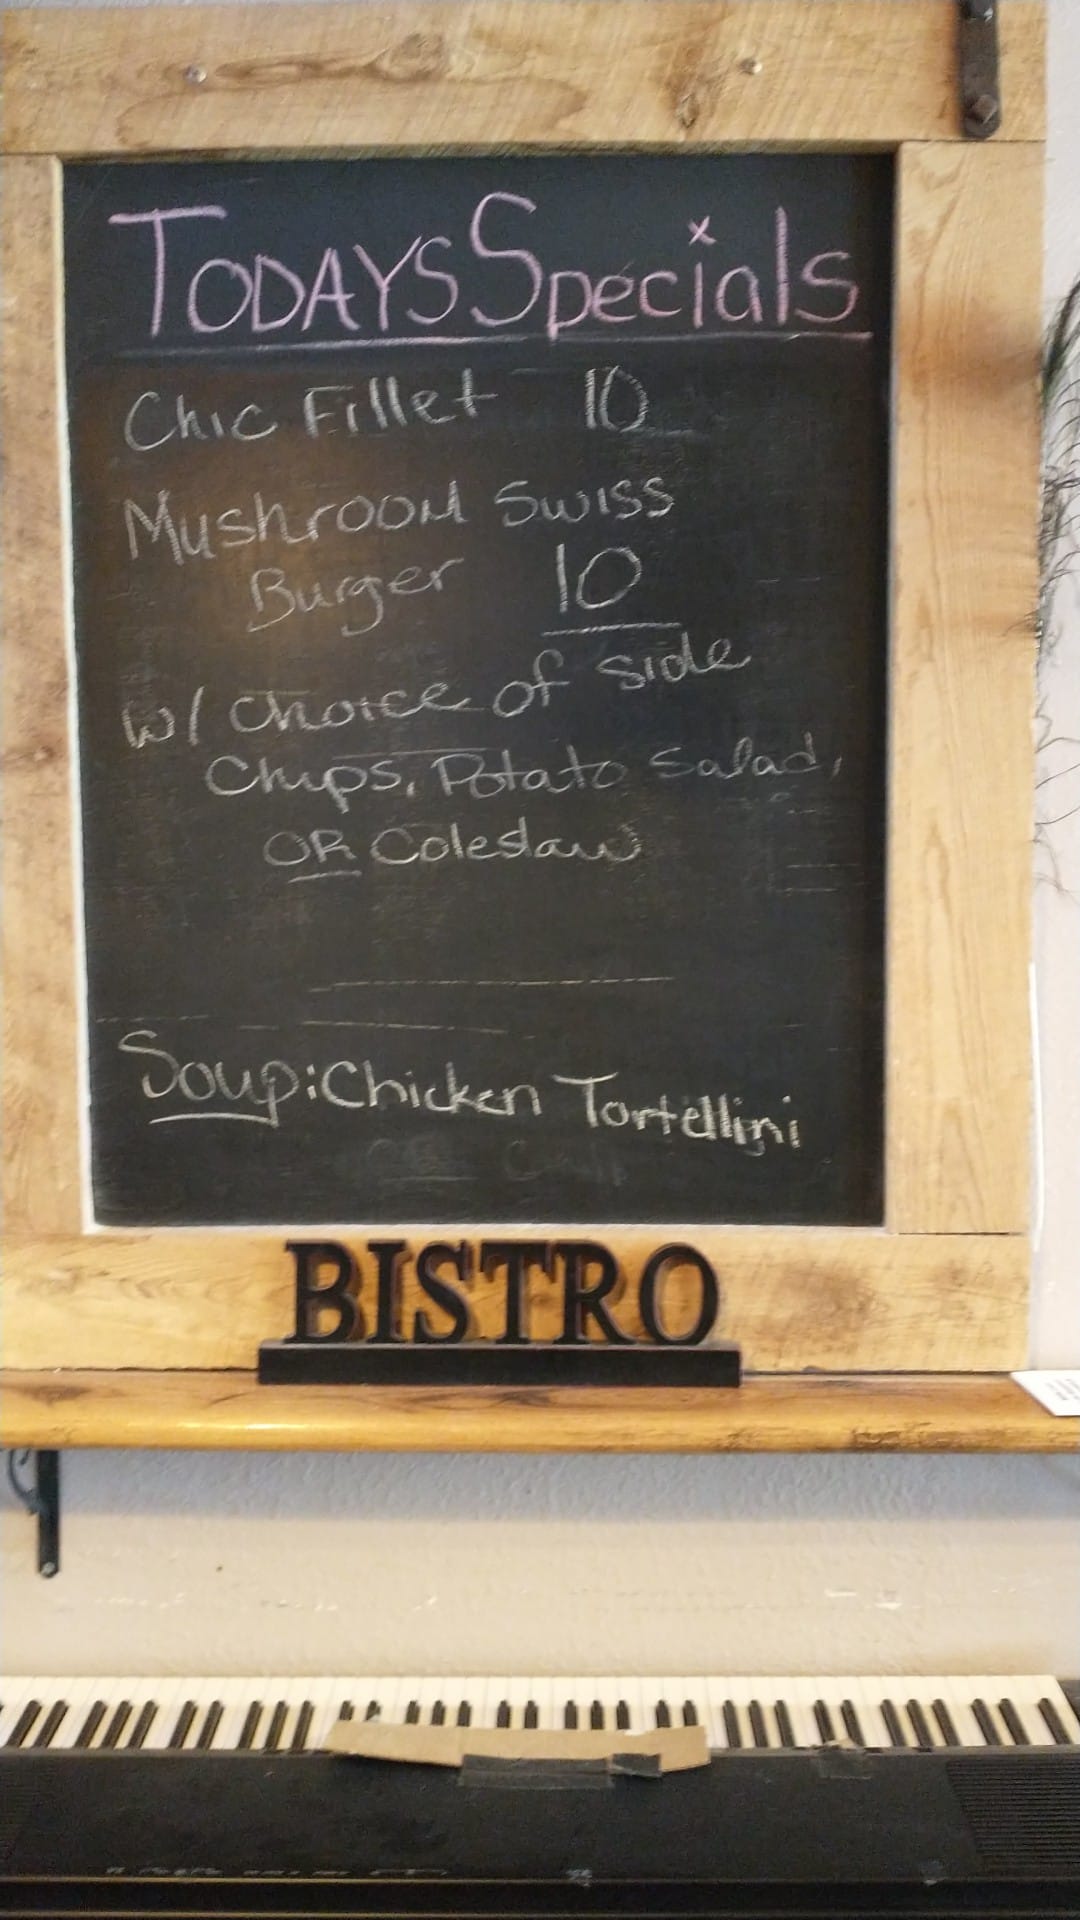 TODAYS Specials
Chic Fillet 10
Mushroom Swiss
Burger 10
w/ choice of side
Chips, Potato Salad,
OR Coleslaw
Soup: Chicken Tortellini
BISTRO